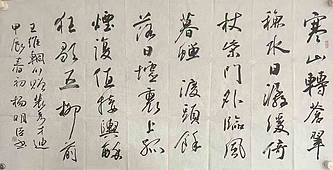 寒山轉蒼翠
秋水日潺湲倚
杖柴門外臨風
暮蟬渡頭餘
落日墟裏上孤
煙復值接輿醉
狂歌五柳前
王維輞川閒居贈裴秀才迪
甲辰春初楊明臣書